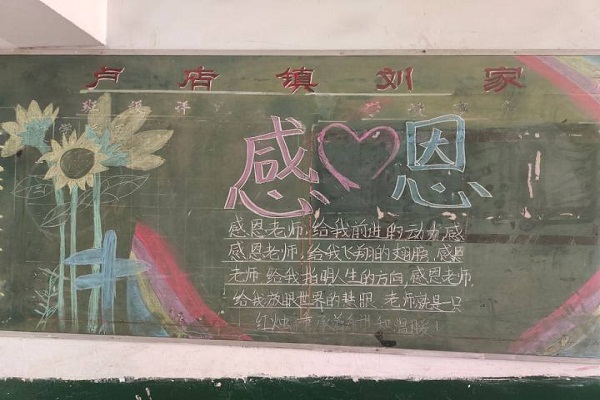 卢店镇刘家
感恩
感恩老师,给我前进的动力,感
感恩老师,给我飞翔的翅膀,感恩
老师,给我指明人生的方向,感恩老师,
给我放眼世界的慧眼,老师就是一只
红烛
和温暖!